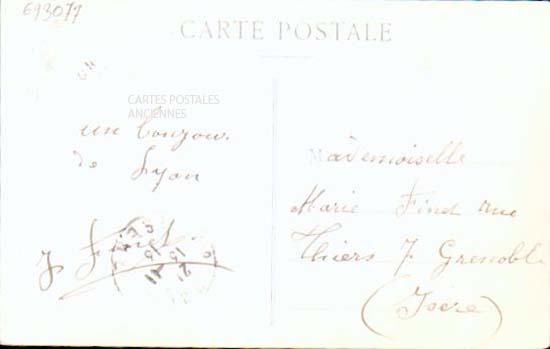 693077
CARTE POSTALE
CARTES POSTALES
ANCIENNES
un bonjour
de
Lyon
J Finet
Mademoiselle
Marie Finet rue
Thiers 7 Grenoble
(Isère)